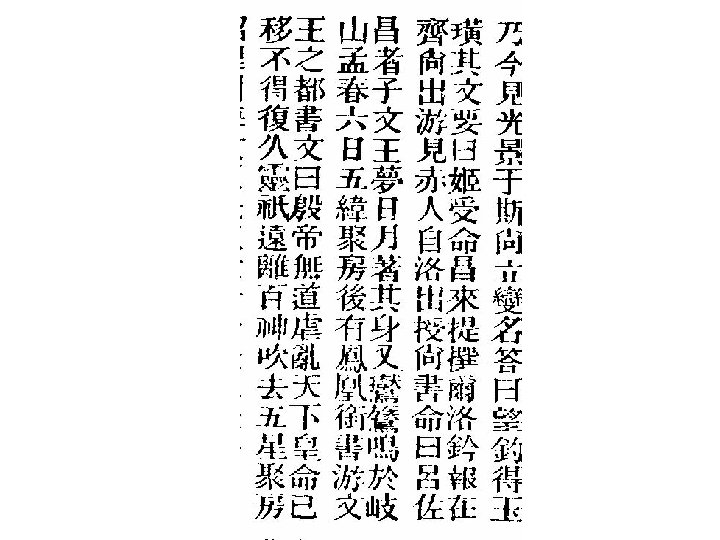 乃今見光景于斯尚立變名答曰望釣得玉
璜其文要曰姬受命昌來提撰爾洛鈐報在
齊尚出游見赤人自洛出授尚書命曰呂佐
昌者子文王夢日月著其身又鸑鷟鳴於岐
山孟春六日五緯聚房後有鳳凰銜書游文
王之都書文曰殷帝無道虐亂天下皇命已
移不得復久靈祇遠離百神吹去五星聚房